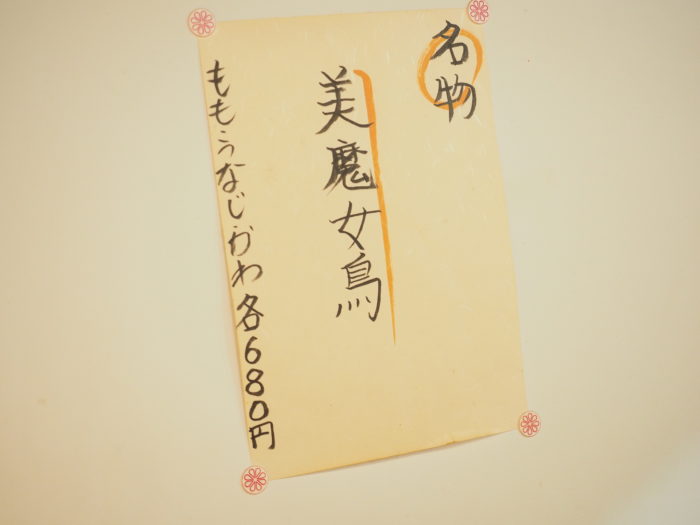 名物
美魔女鳥
ももうなじかわ各680円